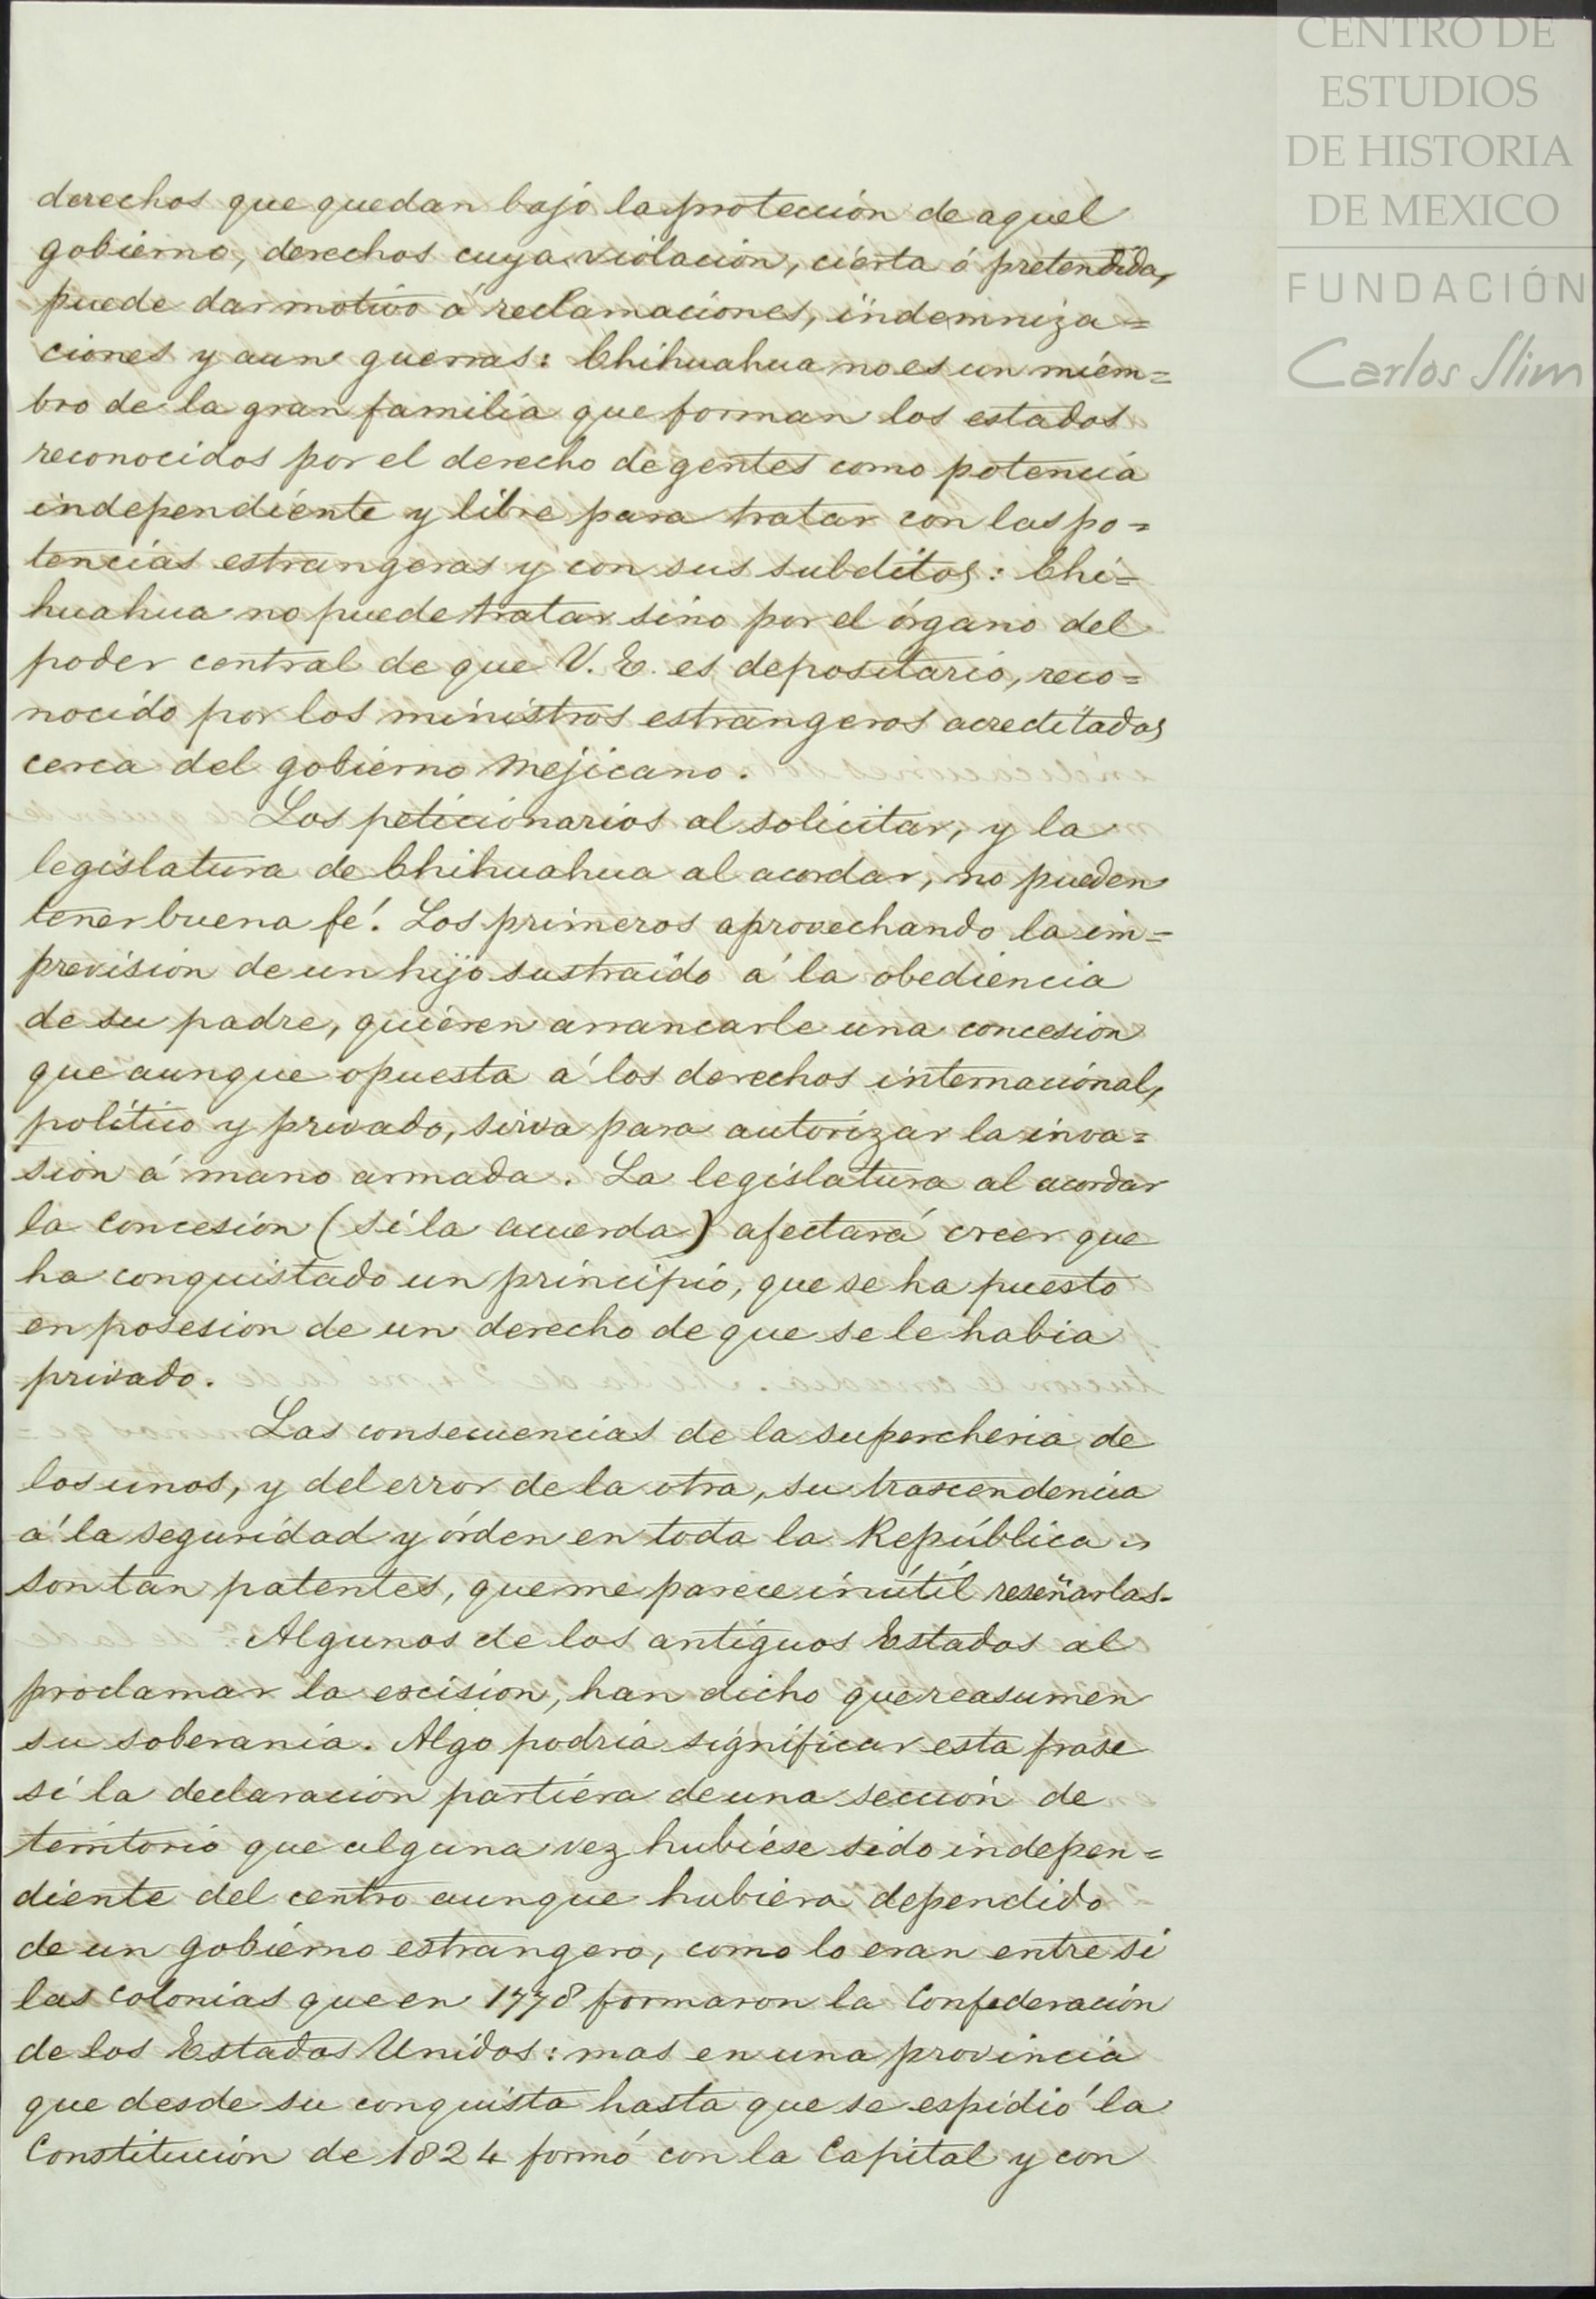 CENTRO DE
ESTUDIOS
DE HISTORIA
DE MEXICO
FUNDACIÓN
Carlos Slim
derechos que quedan bajo la proteccion de aquel
gobierno, derechos cuya violacion, cierta ó pretendida,
puede dar motivo á reclamaciones, indemniza=
ciones y aun guerras: Chihuahua no es un miem=
bro de la gran familia que forman los estados
reconocidos por el derecho de gentes como potencia
independiente y libre para tratar con las po=
tencias estrangeras y con sus subditos: Chi=
huahua no puede tratar sino por el órgano del
poder central de que V. E. es depositario, reco=
nocido por los ministros estrangeros acreditados
cerca del gobierno Mejicano.
Los peticionarios al solicitar, y la
legislatura de Chihuahua al acordar, no pueden
tener buena fé. Los primeros aprovechando la im=
prevision de un hijo sustraido á la obediencia
de su padre, quieren arrancarle una concesion
que aunque opuesta á los derechos internacional,
politico y privado, sirva para autorizar la inva=
sion á mano armada. La legislatura al acordar
la concesion (si la acuerda) afectará creer que
ha conquistado un principio, que se ha puesto
en posesion de un derecho de que se le habia
privado.
Las consecuencias de la supercheria de
los unos, y del error de la otra, su trascendencia
á la seguridad y órden en toda la República
son tan patentes, que me parece inútil reseñarlas.
Algunos de los antiguos Estados al
proclamar la escision, han dicho que reasumen
su soberania. Algo podria significar esta frase
si la declaracion partiera de una seccion de
territorio que alguna vez hubiese sido indepen=
diente del centro aunque hubiera dependido
de un gobierno estrangero, como lo eran entre si
las colonias que en 1778 formaron la Confederacion
de los Estados Unidos: mas en una provincia
que desde su conquista hasta que se espidió la
Constitucion de 1824 formó con la Capital y con